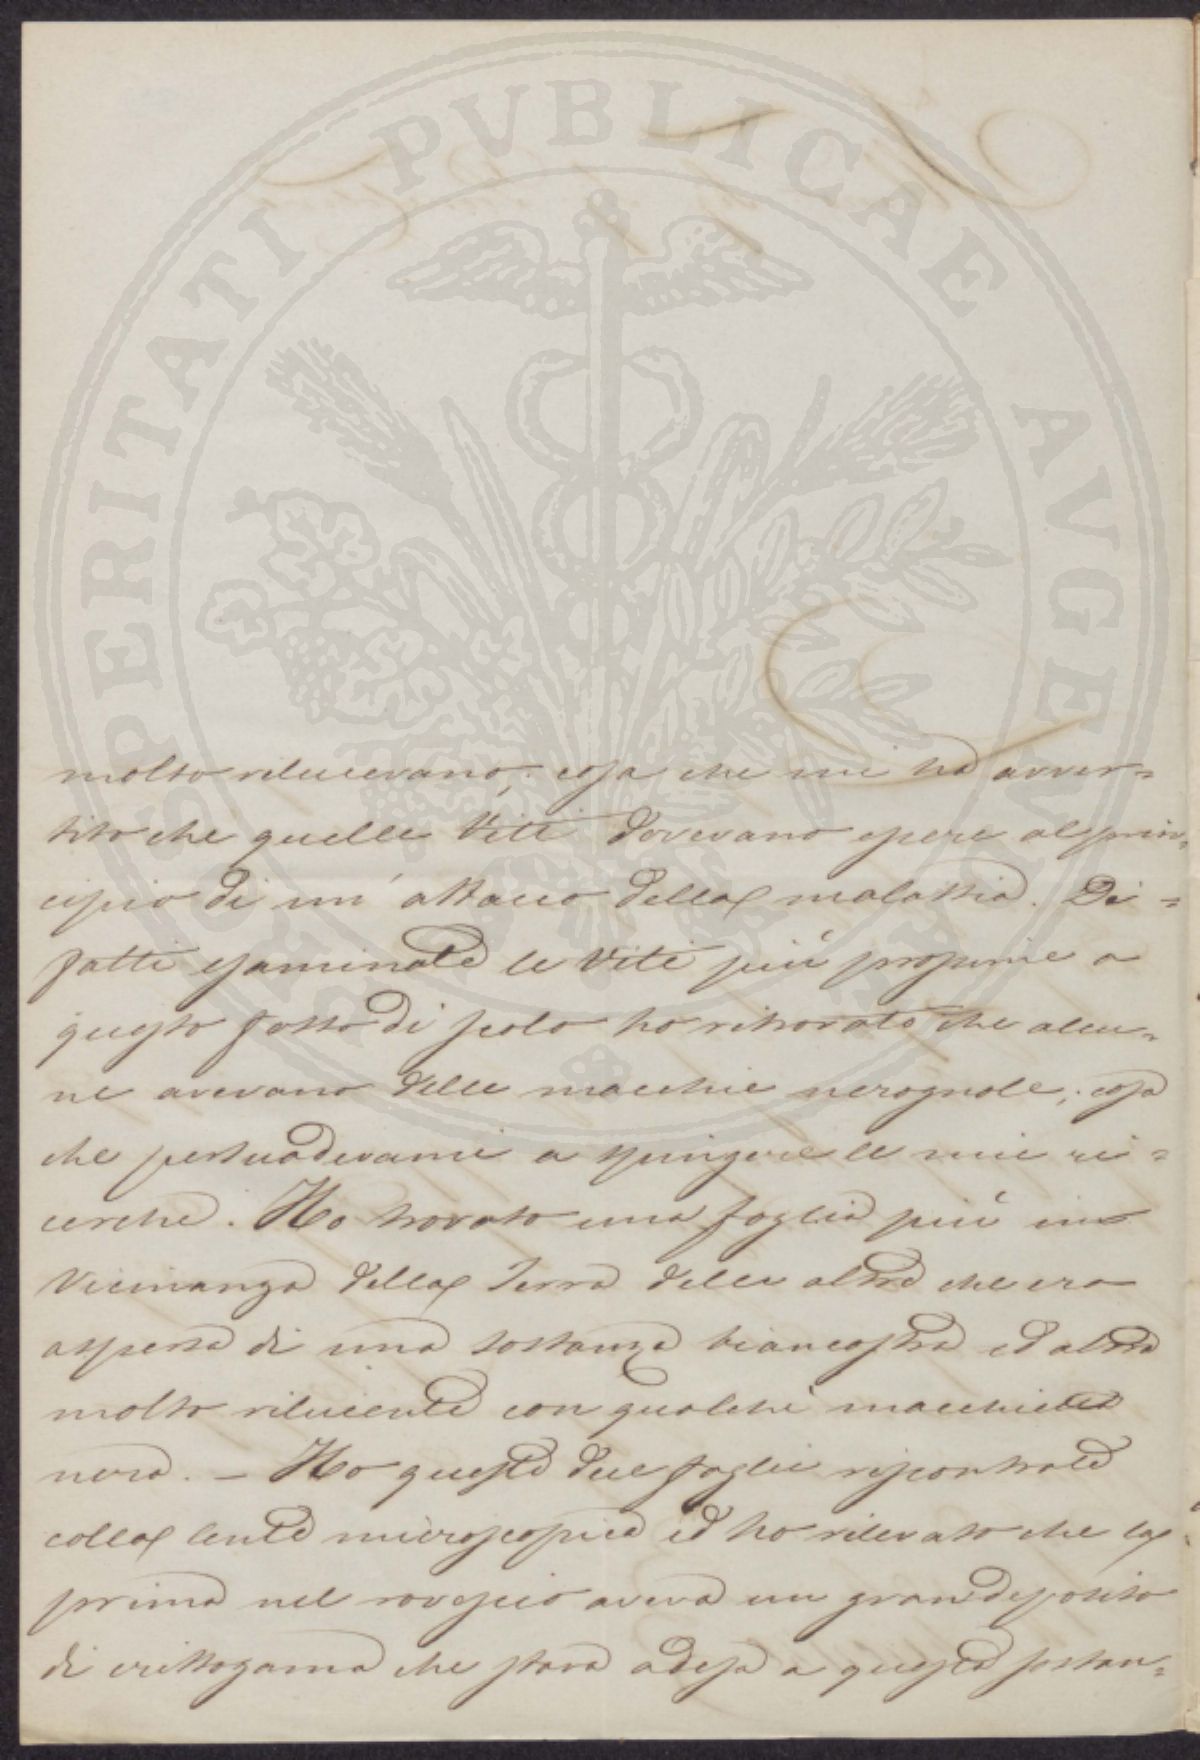 PROSPERITATI PUBLICAE AVGENDAE
molto rilucevano; cosa che mi ha avver=
tito che quelle Viti dovevano essere al prin=
cipio di un' attacco della malattia. Di=
fatti esaminate le Viti più prossime a
questo fosso di scolo ho ritrovato che alcu=
ne avevano delle macchie nerognole; cosa
che persuadevami a spingere le mie ri=
cerche. Ho trovato una foglia più in
Vicinanza della Terra delle altre che era
aspersa di una sostanza biancastra ed altra
molto rilucente con qualche macchietta
nera. – Ho queste due foglie riscontrate
colla lente microscopica ed ho rilevato che la
prima nel rovescio aveva un gran deposito
di crittogama che stava adesa a questa sostan=